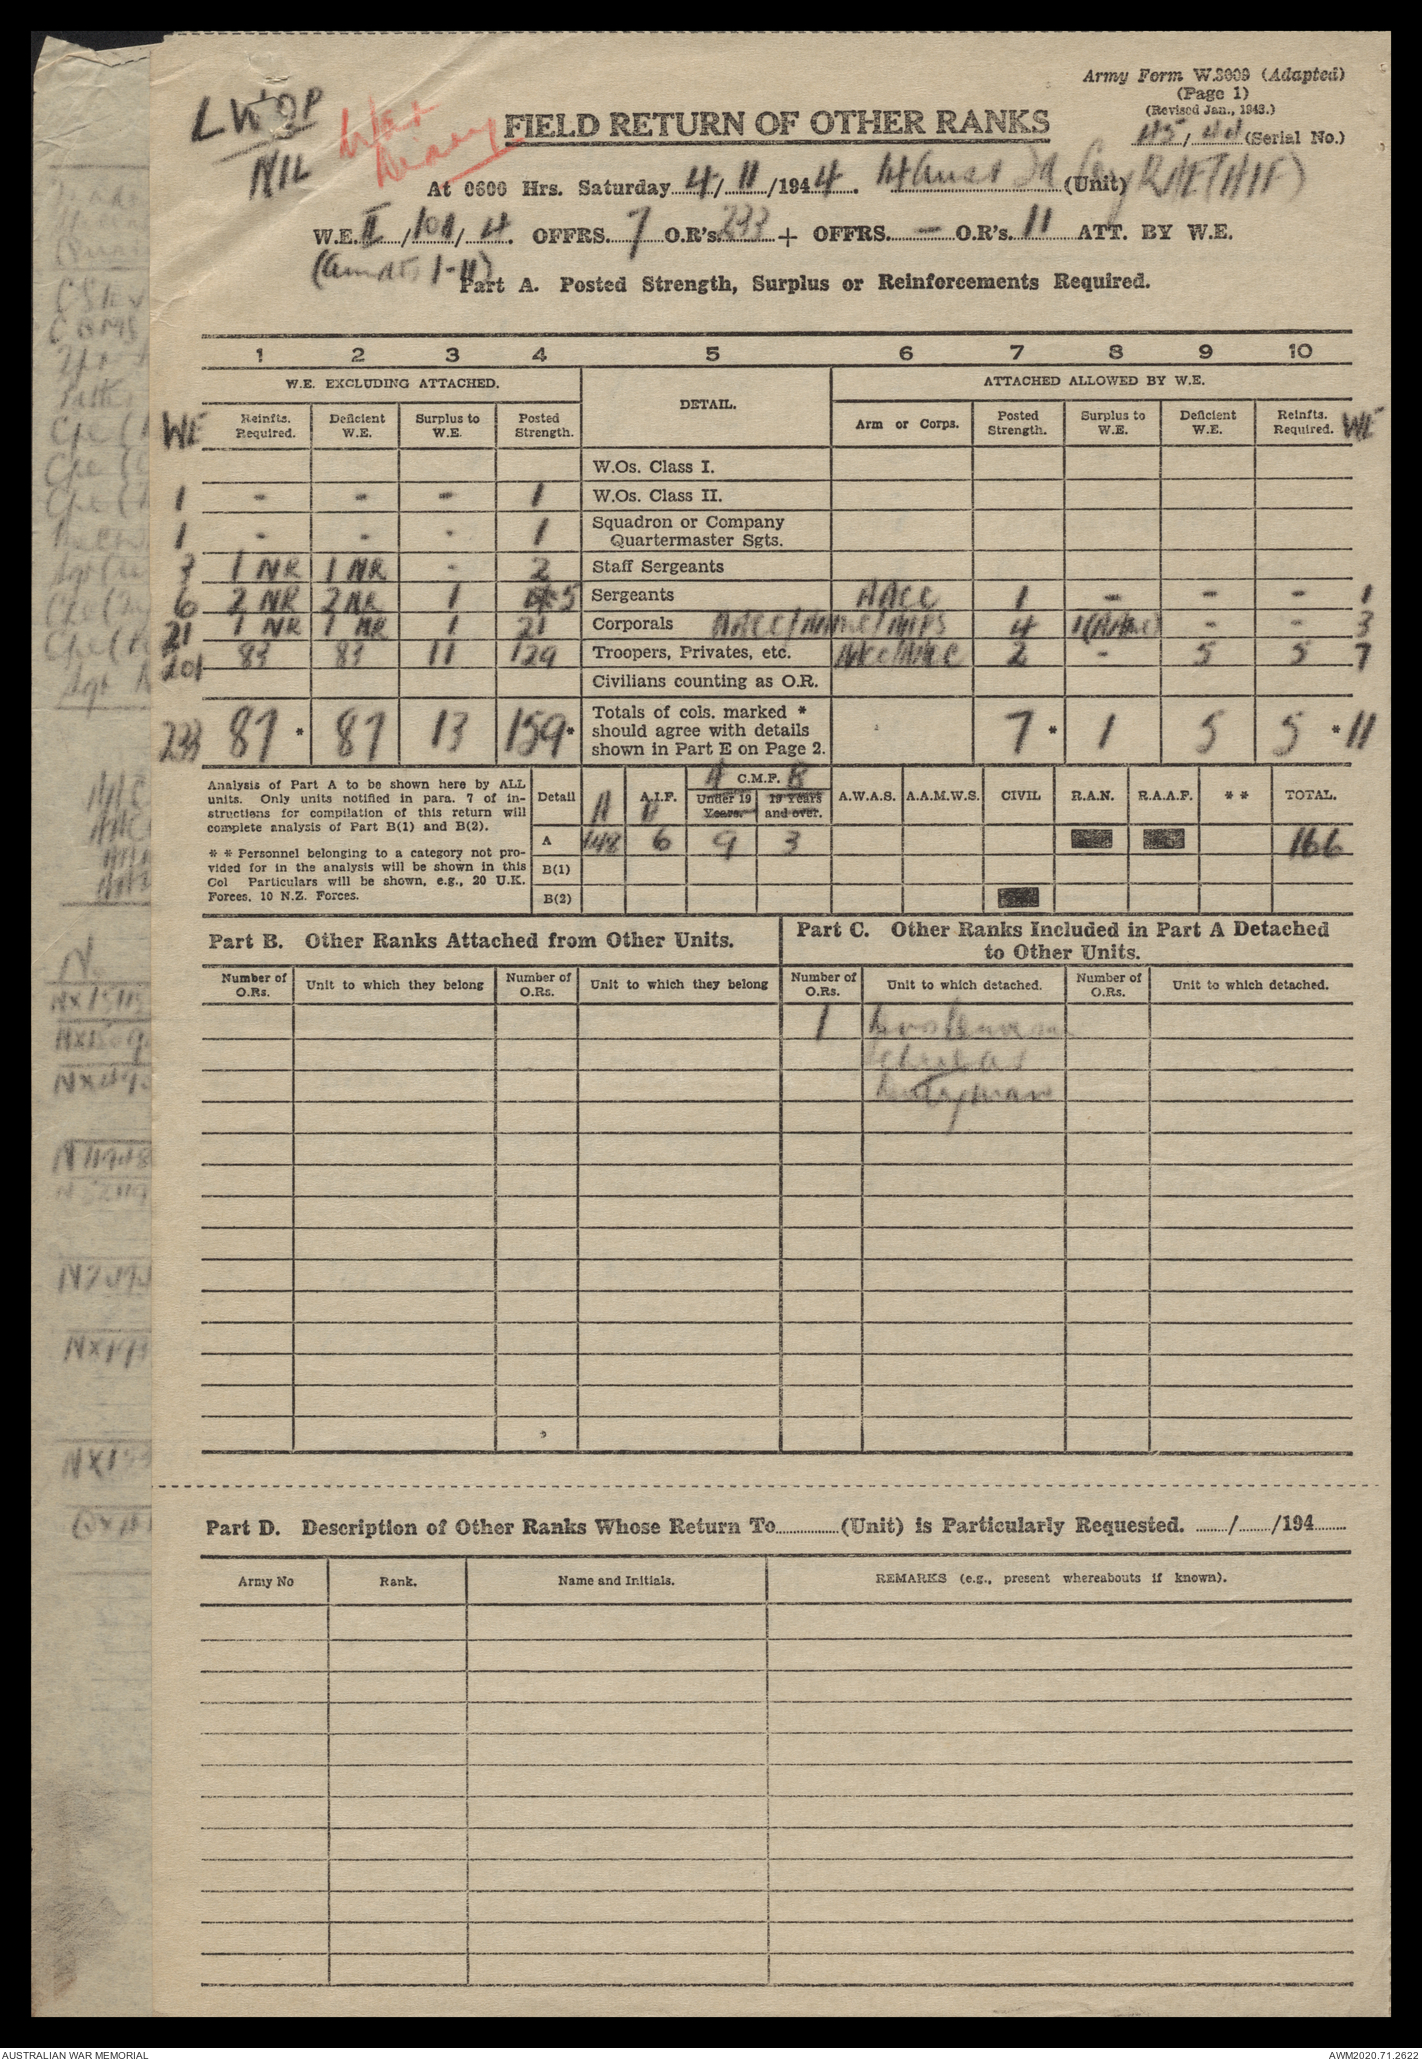 Army Form W.3009 (Adapted)
(Page 1)
(Revised Jan., 1943.)
45/44 (Serial No.)
LWOP
NIL
War
Diary
FIELD RETURN OF OTHER RANKS
At 0600 Hrs. Saturday 4/11/1944. 14 Aust Fd Coy RAE (AIF) (Unit)
W.E. II/101/4. OFFRS. 7 O.R's 233 + OFFRS. - O.R's. 11 ATT. BY W.E.
(Amdts 1-11)
Part A. Posted Strength, Surplus or Reinforcements Required.
1 2 3 4 5 6 7 8 9 10
W.E. EXCLUDING ATTACHED. DETAIL. ATTACHED ALLOWED BY W.E.
WE Reinfts. Required. Deficient W.E. Surplus to W.E. Posted Strength. Arm or Corps. Posted Strength. Surplus to W.E. Deficient W.E. Reinfts. Required. WE
W.Os. Class I.
1 - - - 1 W.Os. Class II.
1 - - - 1 Squadron or Company Quartermaster Sgts.
3 1 NR 1 NR - 2 Staff Sergeants
6 2 NR 2 NR 1 5 Sergeants AACC 1 - - - 1
21 1 NR 1 NR 1 21 Corporals AACC/AAMC/ 4 1(AAMC) - - 3
201 83 83 11 129 Troopers, Privates, etc. AACC/AAMC 2 - 5 5 7
Civilians counting as O.R.
233 87 * 87 13 159 * Totals of cols. marked * should agree with details shown in Part E on Page 2. 7 * 1 5 5 * 11
Analysis of Part A to be shown here by ALL
units. Only units notified in para. 7 of in-
structions for compilation of this return will
complete analysis of Part B(1) and B(2).
* * Personnel belonging to a category not pro-
vided for in the analysis will be shown in this
Col Particulars will be shown, e.g., 20 U.K.
Forces, 10 N.Z. Forces.
Detail A A.I.F. B A C.M.F. B A.W.A.S. A.A.M.W.S. CIVIL R.A.N. R.A.A.F. * * TOTAL.
Under 19 Years. 19 Years and over.
A 148 6 9 3 166
B(1)
B(2)
Part B. Other Ranks Attached from Other Units.
Part C. Other Ranks Included in Part A Detached
to Other Units.
Number of O.Rs. Unit to which they belong Number of O.Rs. Unit to which they belong Number of O.Rs. Unit to which detached. Number of O.Rs. Unit to which detached.
1
Part D. Description of Other Ranks Whose Return To............(Unit) is Particularly Requested. ....../....../194......
Army No Rank. Name and Initials. REMARKS (e.g., present whereabouts if known).
AUSTRALIAN WAR MEMORIAL
AWM2020.71.2622